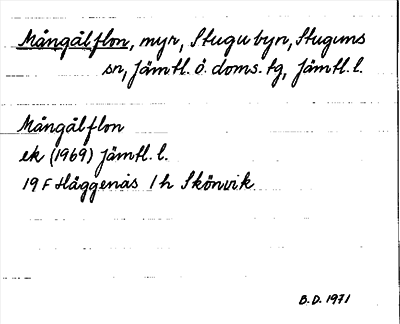 Mångälflon, myr, Stugu byn, Stuguns
sn, Jämtl. ö. doms. tg, Jämtl. l.
Mångälflon
ek (1969) Jämtl. l.
19 F Häggenås 1 h Skönvik
B.D. 1971